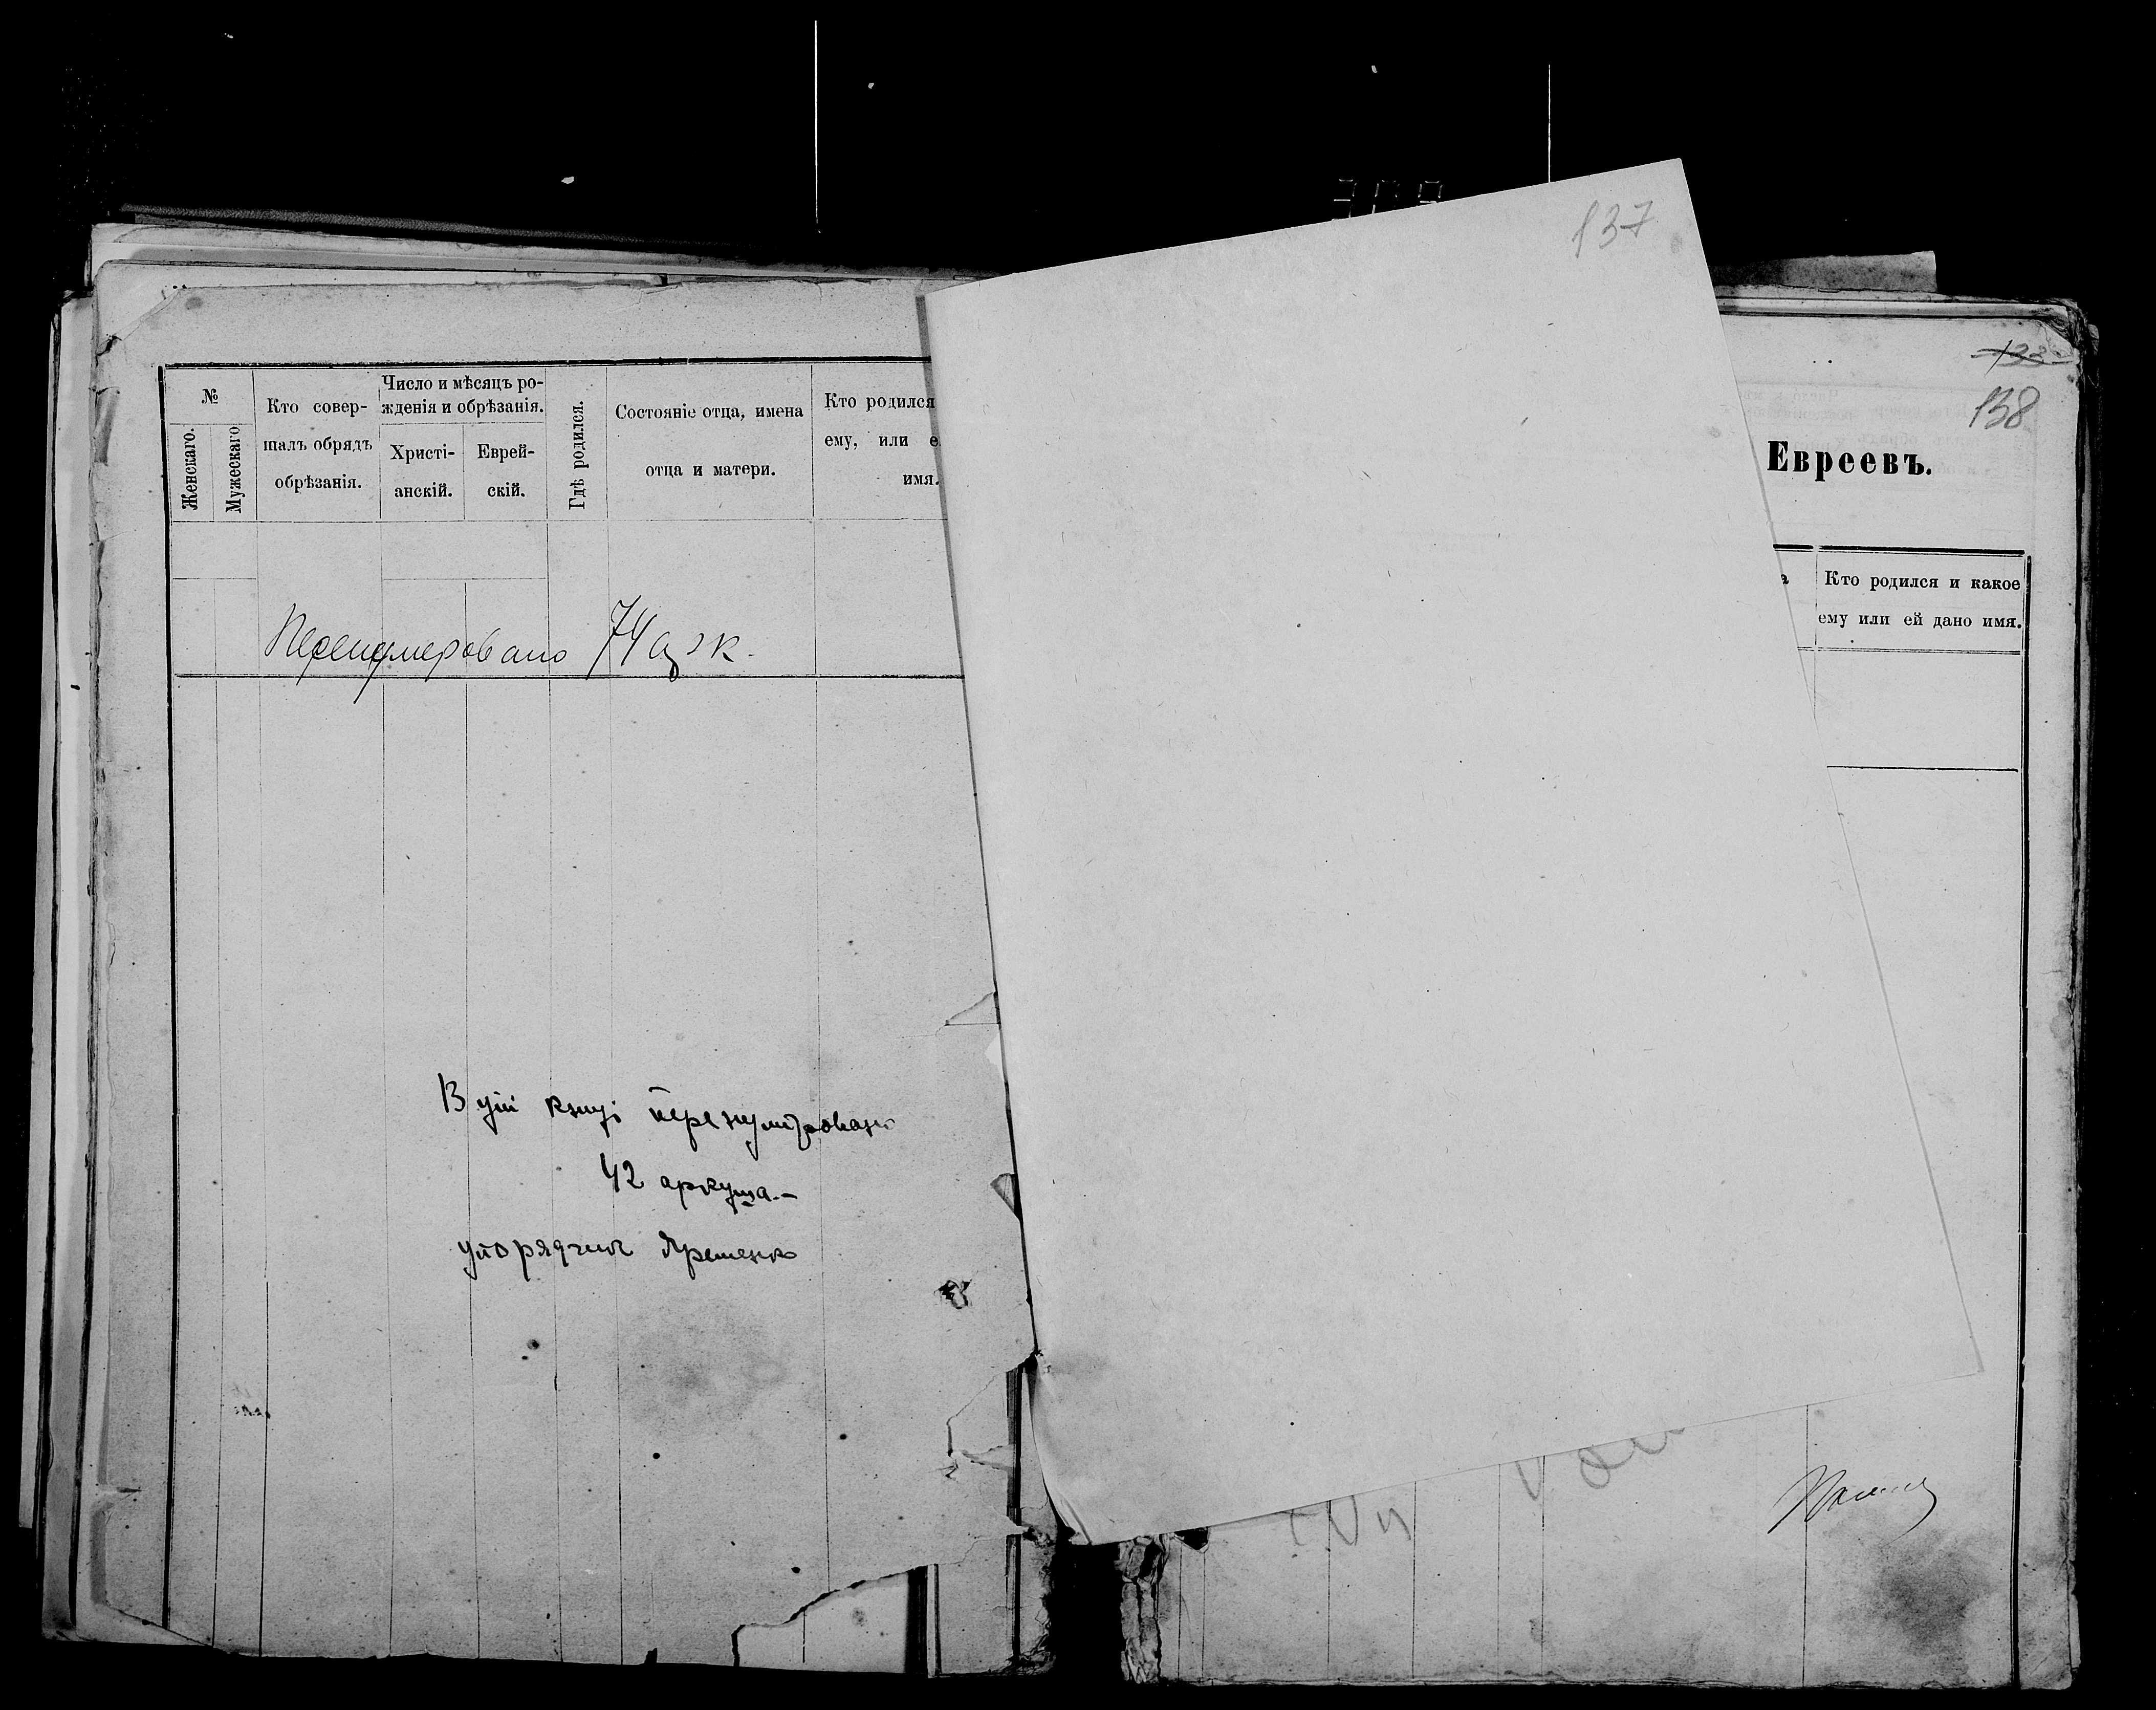 №
Женскаго.
Мужескаго
Кто совер-
шалъ обрядъ
обрѣзанія.
Число и мѣсяцъ ро-
жденія и обрѣзанія.
Христі-
анскій.
Еврей-
скій.
Гдѣ родился.
Состояніе отца, имена
отца и матери.
Кто родился
ему, или е
имя.
Перенумеровано 74 арк.
В цій книзі перенумеровано
42 аркуша.-
упорядчик Яременко
137
133
138
Евреевъ.
а
Кто родился и какое
ему или ей дано имя.